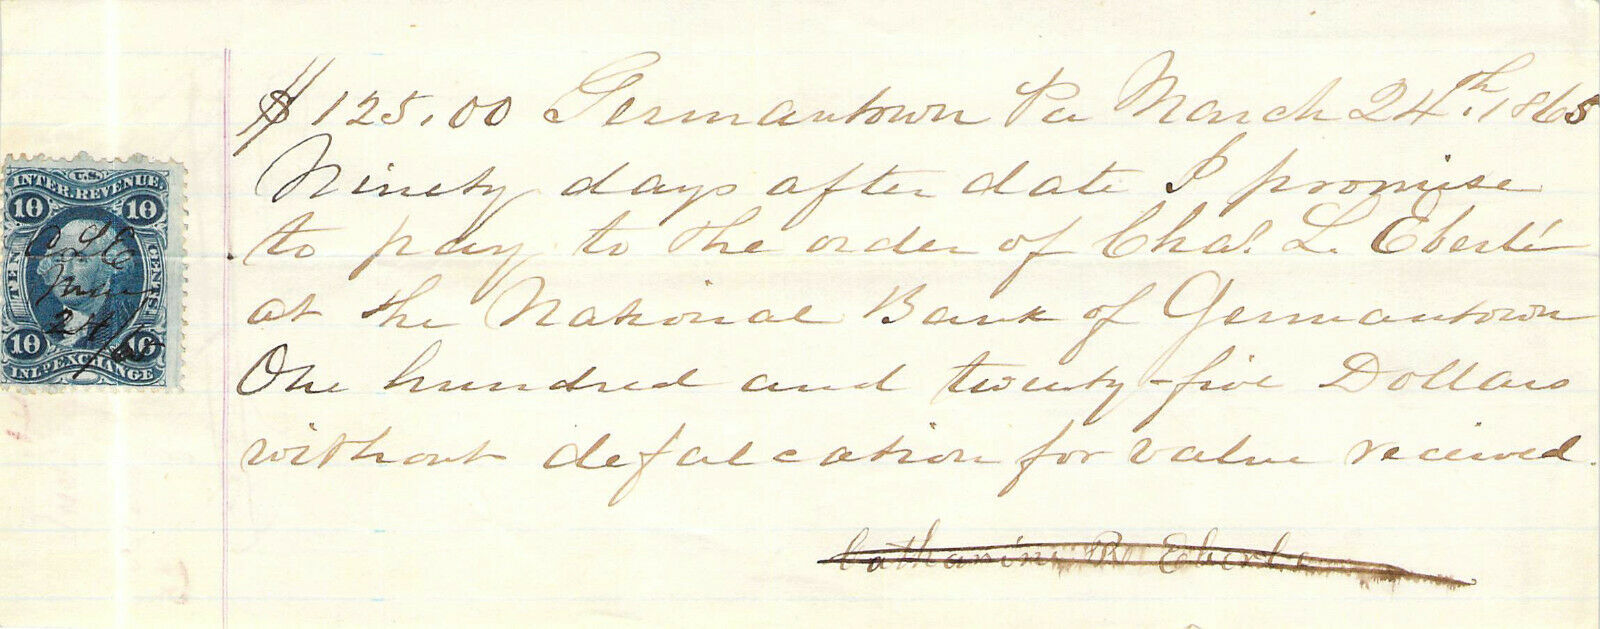 $125.00 Germantown Pa March 24th. 1865
Ninety days after date I promise
to pay to the order of Chas. L. Eberlé
at the National Bank of Germantown
One hundred and twenty-five Dollars
without defalcation for value received.
Catharine R Eberle
U.S.
INTER. REVENUE.
10 10
TEN CENTS
24/65
10 10
INL. EXCHANGE